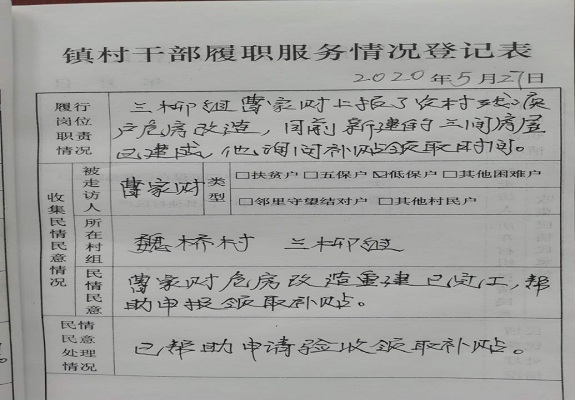 镇村干部履职服务情况登记表
2020年5月21日
履行岗位职责情况
三柳组曹家财上报了农村残疾
户危房改造，目前新建的三间房屋
已建成，他询问补贴领取时间。
收集民情民意情况
被走访人
曹家财
类型
□扶贫户 □五保户 ☑低保户 □其他困难户
□邻里守望结对户 □其他村民户
所在村组
魏桥村 三柳组
民情民意
曹家财危房改造重建已完工，帮
助申报领取补贴。
民情民意处理情况
已帮助申请验收领取补贴。